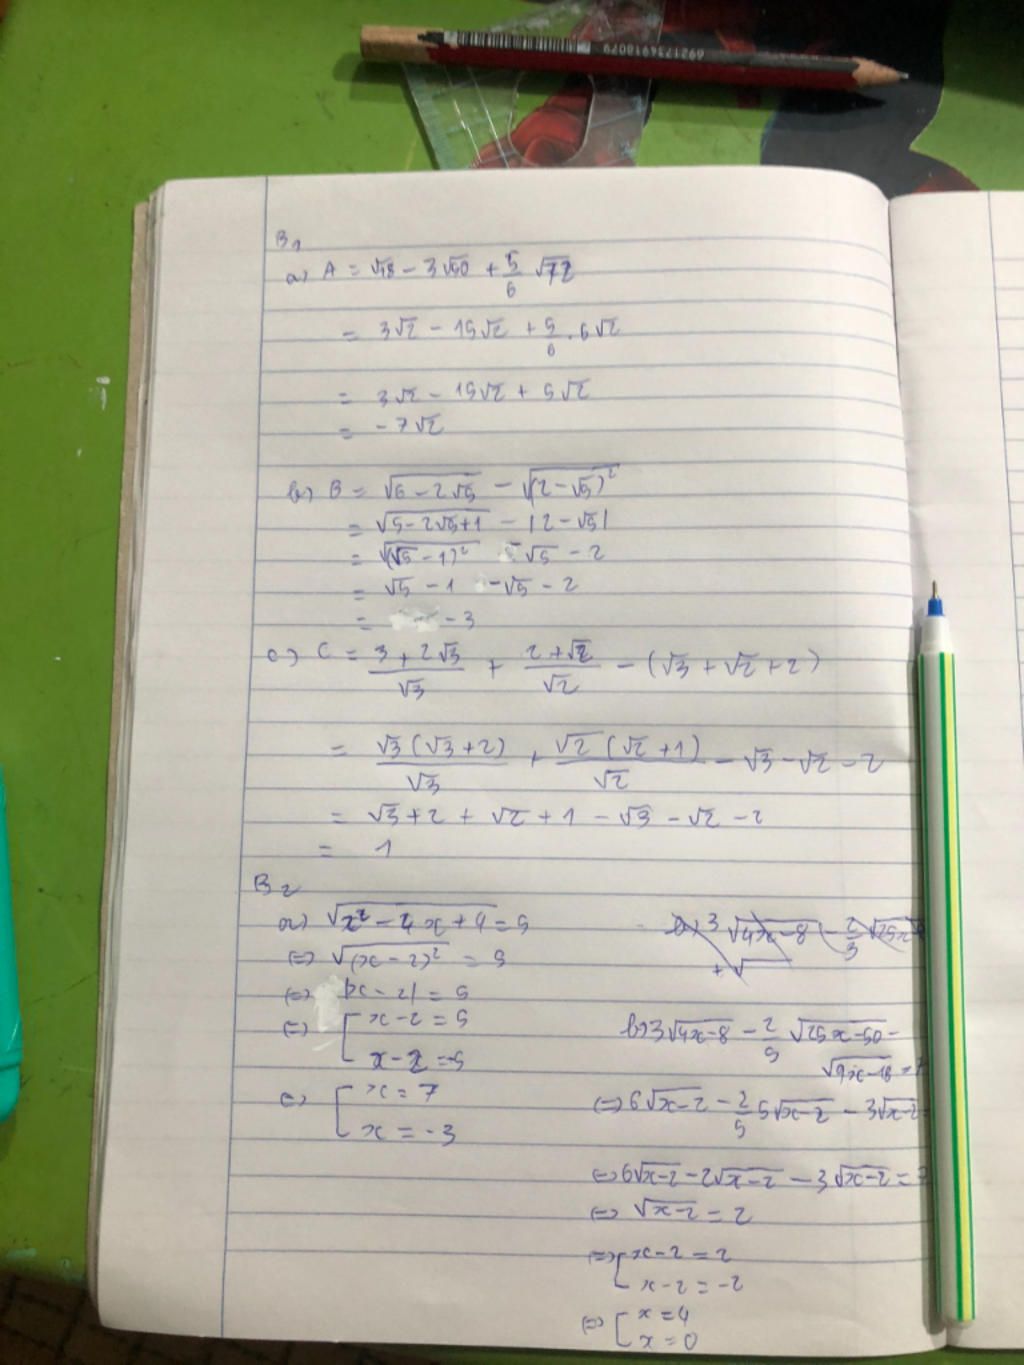 6921734918079
B1
a) A = √18 - 3√50 + 5/6 √72
= 3√2 - 15√2 + 5/6 . 6√2
= 3√2 - 15√2 + 5√2
= - 7√2
b) B = √(6 - 2√5) - √((2 - √5)²)
= √(5 - 2√5 + 1) - |2 - √5|
= √((√5 - 1)²) - √5 - 2
= √5 - 1 - √5 - 2
= - 3
c) C = (3 + 2√3)/√3 + (2 + √2)/√2 - (√3 + √2 + 2)
= √3(√3 + 2)/√3 + √2(√2 + 1)/√2 - √3 - √2 - 2
= √3 + 2 + √2 + 1 - √3 - √2 - 2
= 1
B2
a) √(x² - 4x + 4) = 5
(=) √((x - 2)²) = 5
(=) |x - 2| = 5
(=) [ x - 2 = 5
x - 2 = -5
(=) [ x = 7
x = -3
b) 3√(4x - 8) - 2/3 √25x
+ √
b) 3√(4x - 8) - 2/5 √(25x - 50) -
√(9x - 18) =
(=) 6√(x - 2) - 2/5 5√(x - 2) - 3√(x - 2)
(=) 6√(x - 2) - 2√(x - 2) - 3√(x - 2) =
(=) √(x - 2) = 2
(=) [ x - 2 = 2
x - 2 = -2
(=) [ x = 4
x = 0